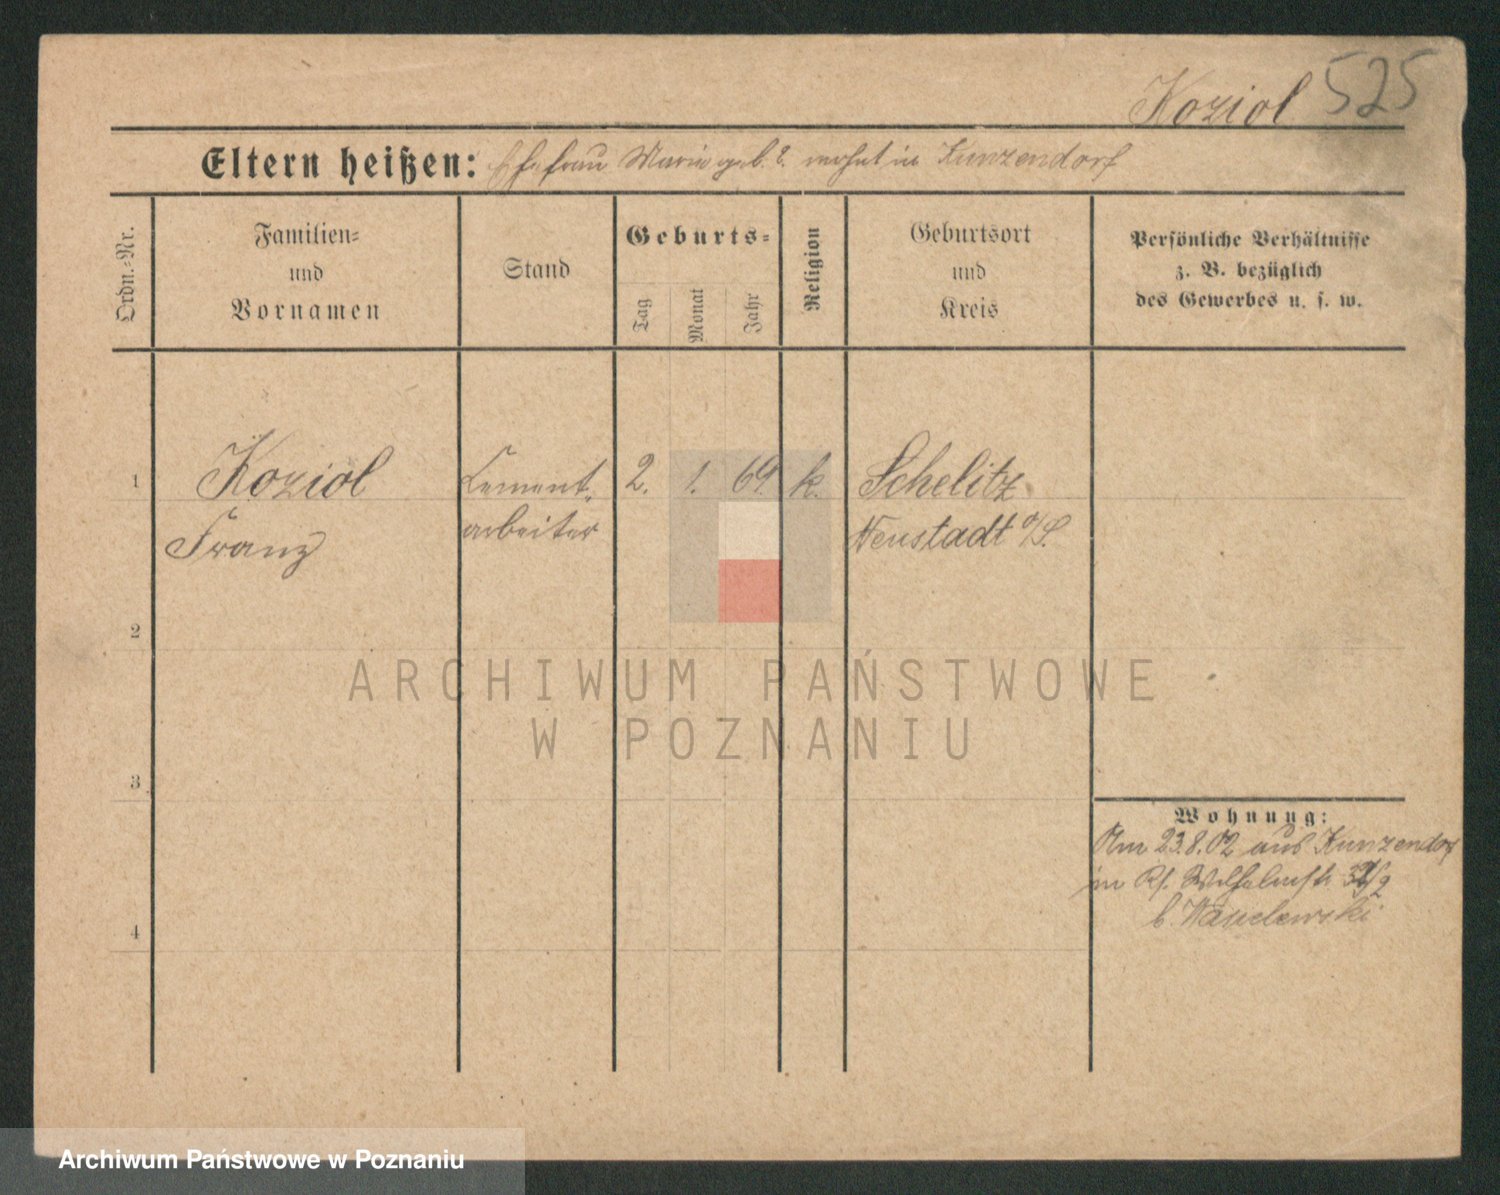 Koziol 525
Eltern heißen: Ehefrau Marie geb. ?. wohnt in Kunzendorf
Ordn.-Nr.
Familien-
und
Vornamen
Stand
Geburts-
Tag
Monat
Jahr
Religion
Geburtsort
und
Kreis
Persönliche Verhältnisse
z. B. bezüglich
des Gewerbes u. s. w.
1 Koziol Cement- 2. 1. 69. k. Schelitz
Franz arbeiter Neustadt o/S.
2
3
4
Wohnung:
Am 23.8.02 aus Kunzendorf
in Ps. Wilhelmstr.
b.
ARCHIWUM PAŃSTWOWE
W POZNANIU
Archiwum Państwowe w Poznaniu